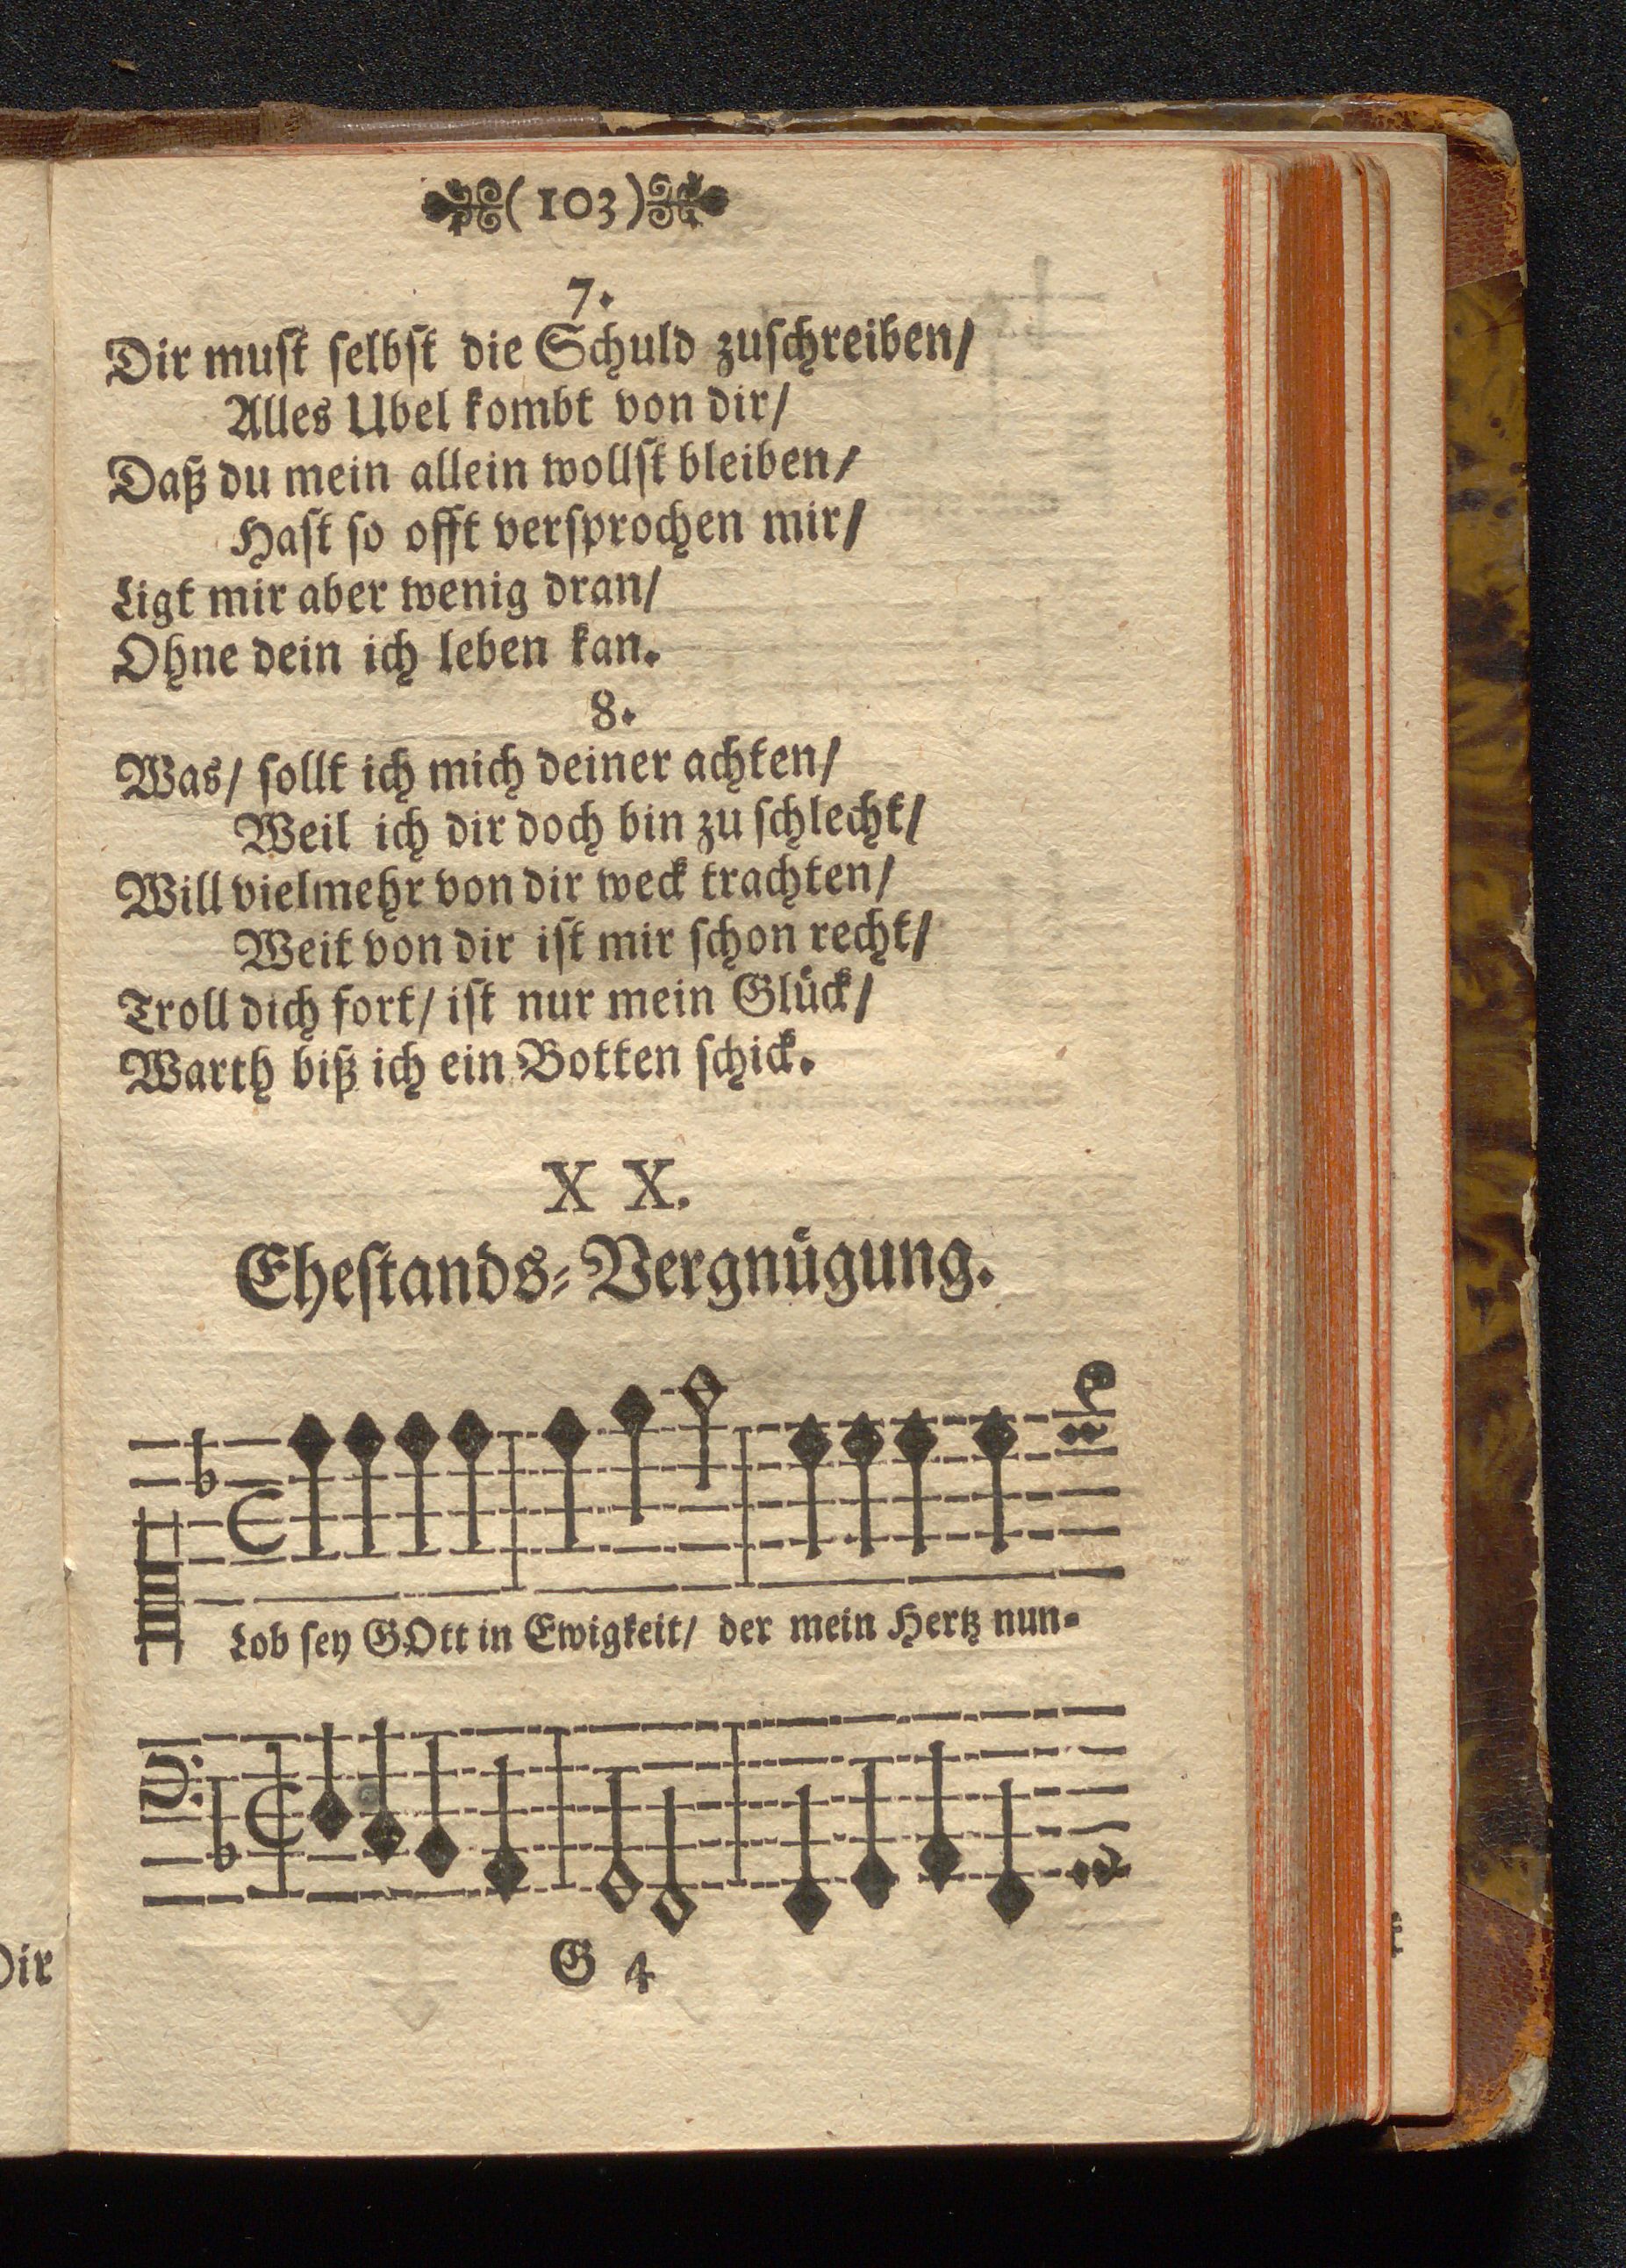 (103)
7.
Dir must selbst die Schuld zuschreiben/
Alles Ubel kombt von dir/
Daß du mein allein wollst bleiben/
Hast so offt versprochen mir/
Ligt mir aber wenig dran/
Ohne dein ich leben kan.
8.
Was/ sollt ich mich deiner achten/
Weil ich dir doch bin zu schlecht/
Will vielmehr von dir weck trachten/
Weit von dir ist mir schon recht/
Troll dich fort/ ist nur mein Glück/
Warth biß ich ein Botten schick.
XX.
Ehestands-Vergnügung.
Lob sey GOtt in Ewigkeit/ der mein Hertz nun-
G 4
Dir